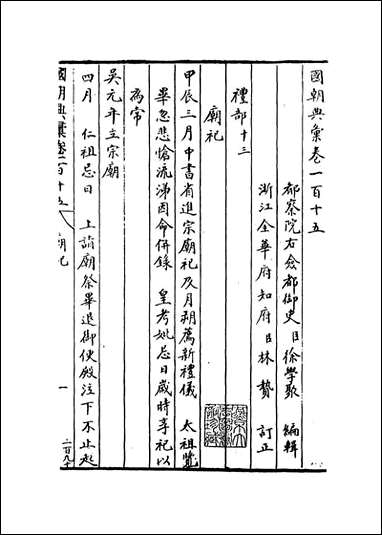 國朝典彙卷一百十五
都察院右僉都御史臣徐學聚 編輯
浙江金華府知府臣林 贄 訂正
禮部十三
廟祀
甲辰三月中書省進宗廟祀及月朔薦新禮儀 太祖覽
畢忽悲愴流涕因命併錄 皇考妣忌日歲時享祀以
為常
吳元年立宗廟
四月 仁祖忌日 上詣廟祭畢退御便殿泣下不止起
國朝典彙卷一百十五 廟祀 一